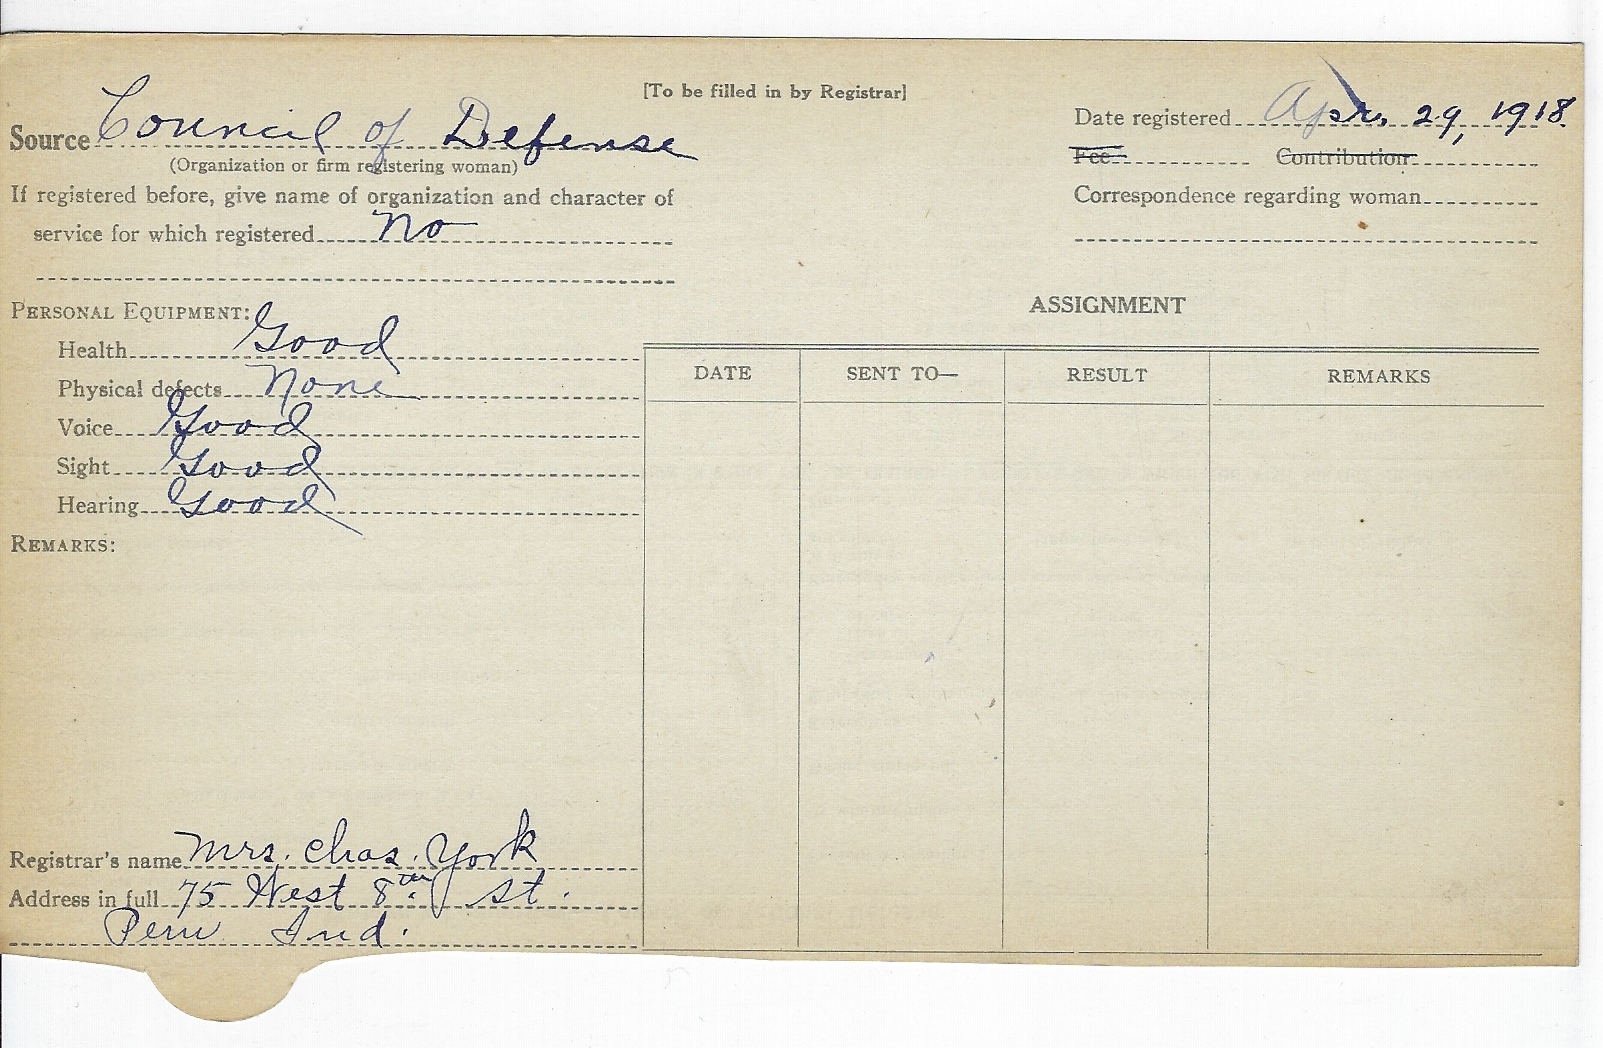 [To be filled in by Registrar]
Source Council of Defense
(Organization or firm registering woman)
If registered before, give name of organization and character of
service for which registered No
Date registered Apr. 29, 1918.
Fee Contribution
Correspondence regarding woman
PERSONAL EQUIPMENT:
Health Good
Physical defects None
Voice Good
Sight Good
Hearing Good
REMARKS:
ASSIGNMENT
DATE SENT TO— RESULT REMARKS
Registrar's name Mrs. Chas. York
Address in full 75 West 8th St.
Peru Ind.